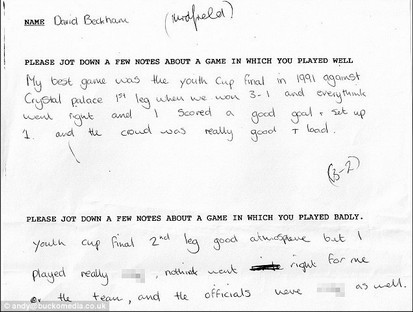 NAME David Beckham (Midfield)
PLEASE JOT DOWN A FEW NOTES ABOUT A GAME IN WHICH YOU PLAYED WELL
My best game was the youth Cup final in 1991 against
Crystal palace 1st leg when we won 3-1 and everythink
went right and I scored a good goal + set up
1. and the crowd was really good + load.
(3-2)
PLEASE JOT DOWN A FEW NOTES ABOUT A GAME IN WHICH YOU PLAYED BADLY.
youth cup final 2nd leg good atmosphere but I
played really , nothink went right for me
or the team, and the officials were as well.
© andy@buckomedia.co.uk